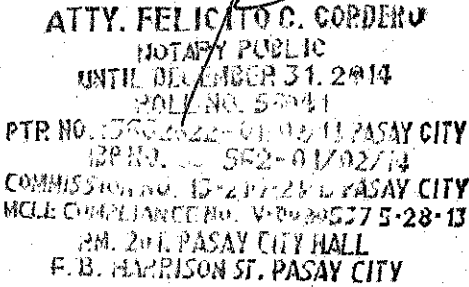 ATTY. FELICITO C. CORDERO
NOTARY PUBLIC
UNTIL DECEMBER 31. 2014
ROLL NO.
PTR NO. PASAY CITY
IBP NO. 562-01/02/14
COMMISSION NO. PASAY CITY
MCLE COMPLIANCE NO. 5-28-13
RM. 201. PASAY CITY HALL
F. B. HARRISON ST. PASAY CITY